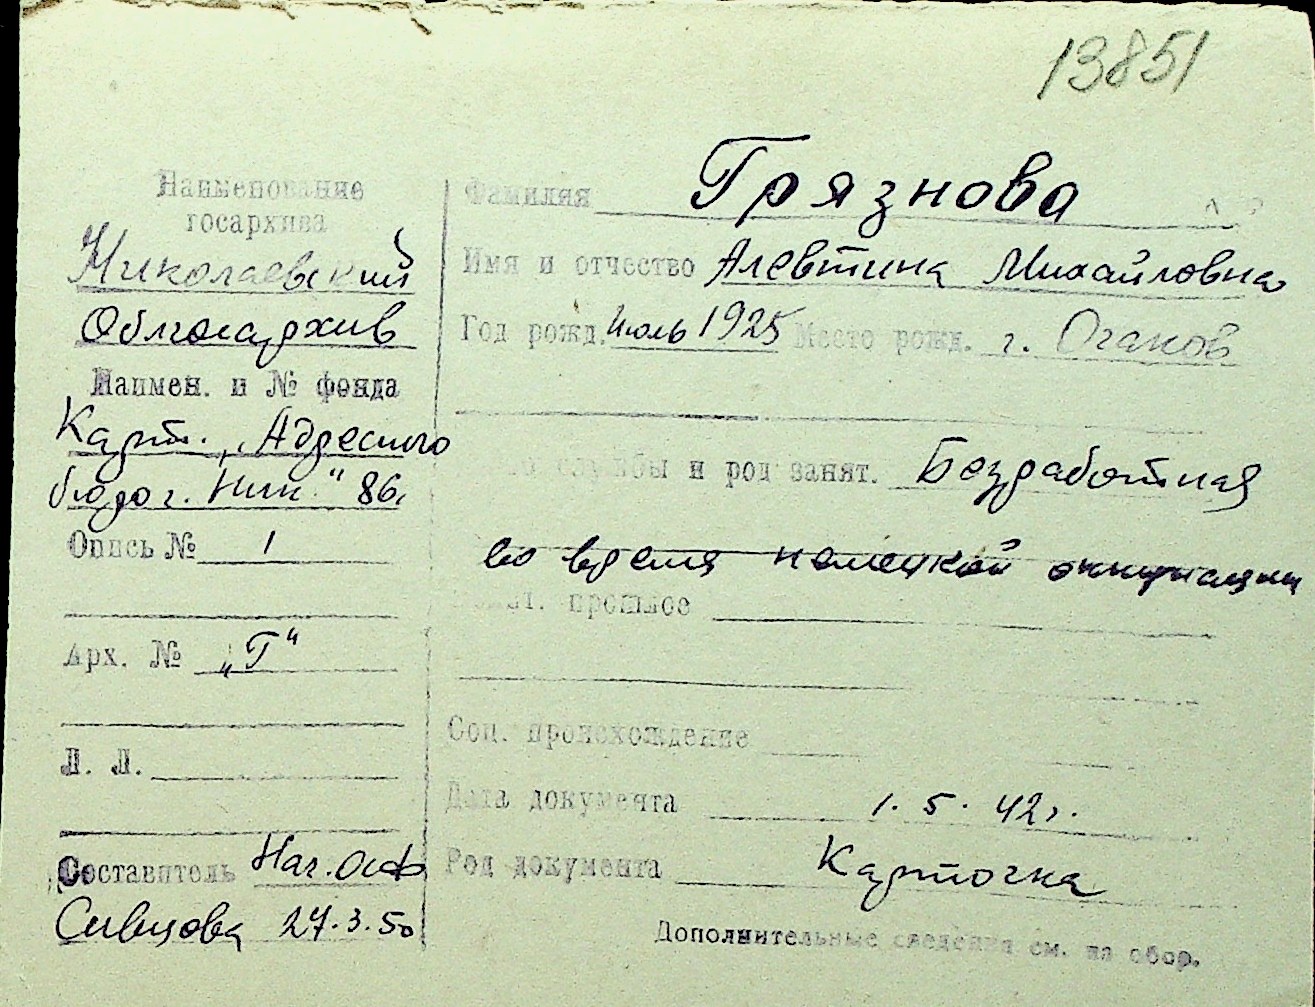 13851
Наименование
госархива
Николаевский
Облгосархив
Наимен. и № фонда
Карт. „Адресного
бюро г. Ник." 86.
Опись № 1
Арх. № „Г"
Л. Л.
Составитель Нач. ОСФ
Сивцова 27.3.50
Фамилия Грязнова
Имя и отчество Алевтина Михайловна
Год рожд. Июль 1925 Место рожд. г. Очаков
службы и род занят. Безработная
во время немецкой оккупации
прошлое
Соц. происхождение
Дата документа 1. 5. 42г.
Род документа Карточка
Дополнительные сведения см. на обор.